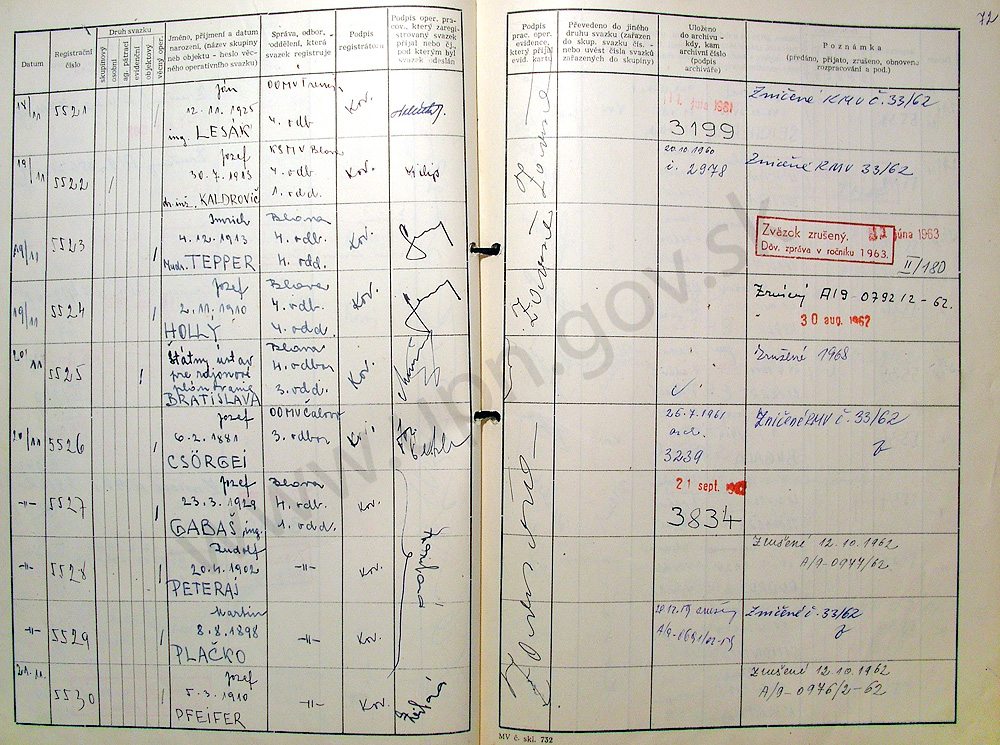 72
Datum
Registrační číslo
Druh svazku
skupinový
osobní
ag. pátrací
evidenční
objektový
věcný oper.
Jméno, příjmení a datum
narození, (název skupiny
neb objektu - heslo věc-
ného operativního svazku)
Správa, odbor.
oddělení, která
svazek registruje
Podpis
registrátora
Podpis oper. pra-
cov., který zaregi-
strovaný svazek
přijal nebo čj.,
pod kterým byl
svazek odeslán
Podpis
prac. oper.
evidence,
který přijal
evid. kartu
Převedeno do jiného
druhu svazku (zařazen
do skup. svazku čís. -
nebo uvést čísla svazků
zařazených do skupiny)
Uloženo
do archivu -
kdy, kam
archivní číslo
(podpis
archiváře)
Poznámka
(předáno, přijato, zrušeno, obnoveno
rozpracování a pod.)
5521
Ján
12. 11. 1925
ing. LESÁK
4. odb
Kov.
3199
Zničené RMV č. 33/62
19/11
5522
Jozef
30. 7. 1913
dr. ing. KALDROVIČ
KSMV Blava
4. odb
1. odd.
Kov.
Filip
20. 10. 1960
č. 2978
Zničené RMV 33/62
19/11
5523
Imrich
4. 12. 1913
Mudr. TEPPER
Blava
4. odb.
4. odd.
Kov.
Zväzok zrušený.
Dôv. zpráva v ročníku 1963.
júna 1963
II/180
19/11
5524
Jozef
2. 11. 1910
HOLLÝ
Blava
4. odb.
4. odd.
Kov.
A/9-0792/2-62.
30 aug. 1962
20/11
5525
Štátny ústav
pre rajonové
plánovanie
BRATISLAVA
Blava
4. odbor
3. odd.
Kov.
Zrušené 1968
20/11
5526
Jozef
6. 2. 1881
CSÖRGEI
OOMV Čalovo
3. odbor
Kov.
26. 7. 1961
arch.
3239
Zničené RMV č. 33/62
-11-
5527
Jozef
23. 3. 1929
GABAŠ, ing.
Blava
4. odb.
1. odd.
Kov.
21 sept.
3834
-11-
5528
Rudolf
20. 4. 1902
PETERAJ
-11-
Kov.
Zrušené 12. 10. 1962
A/9-0977/62
-11-
5529
Martin
8. 8. 1898
PLAČKO
-11-
Kov.
Zničené č. 33/62
21. 11.
5530
Jozef
5. 3. 1910
PFEIFER
-11-
Kov.
Zrušené 12. 10. 1962
A/9-0976/2-62
MV č. skl. 732
www.upn.gov.sk